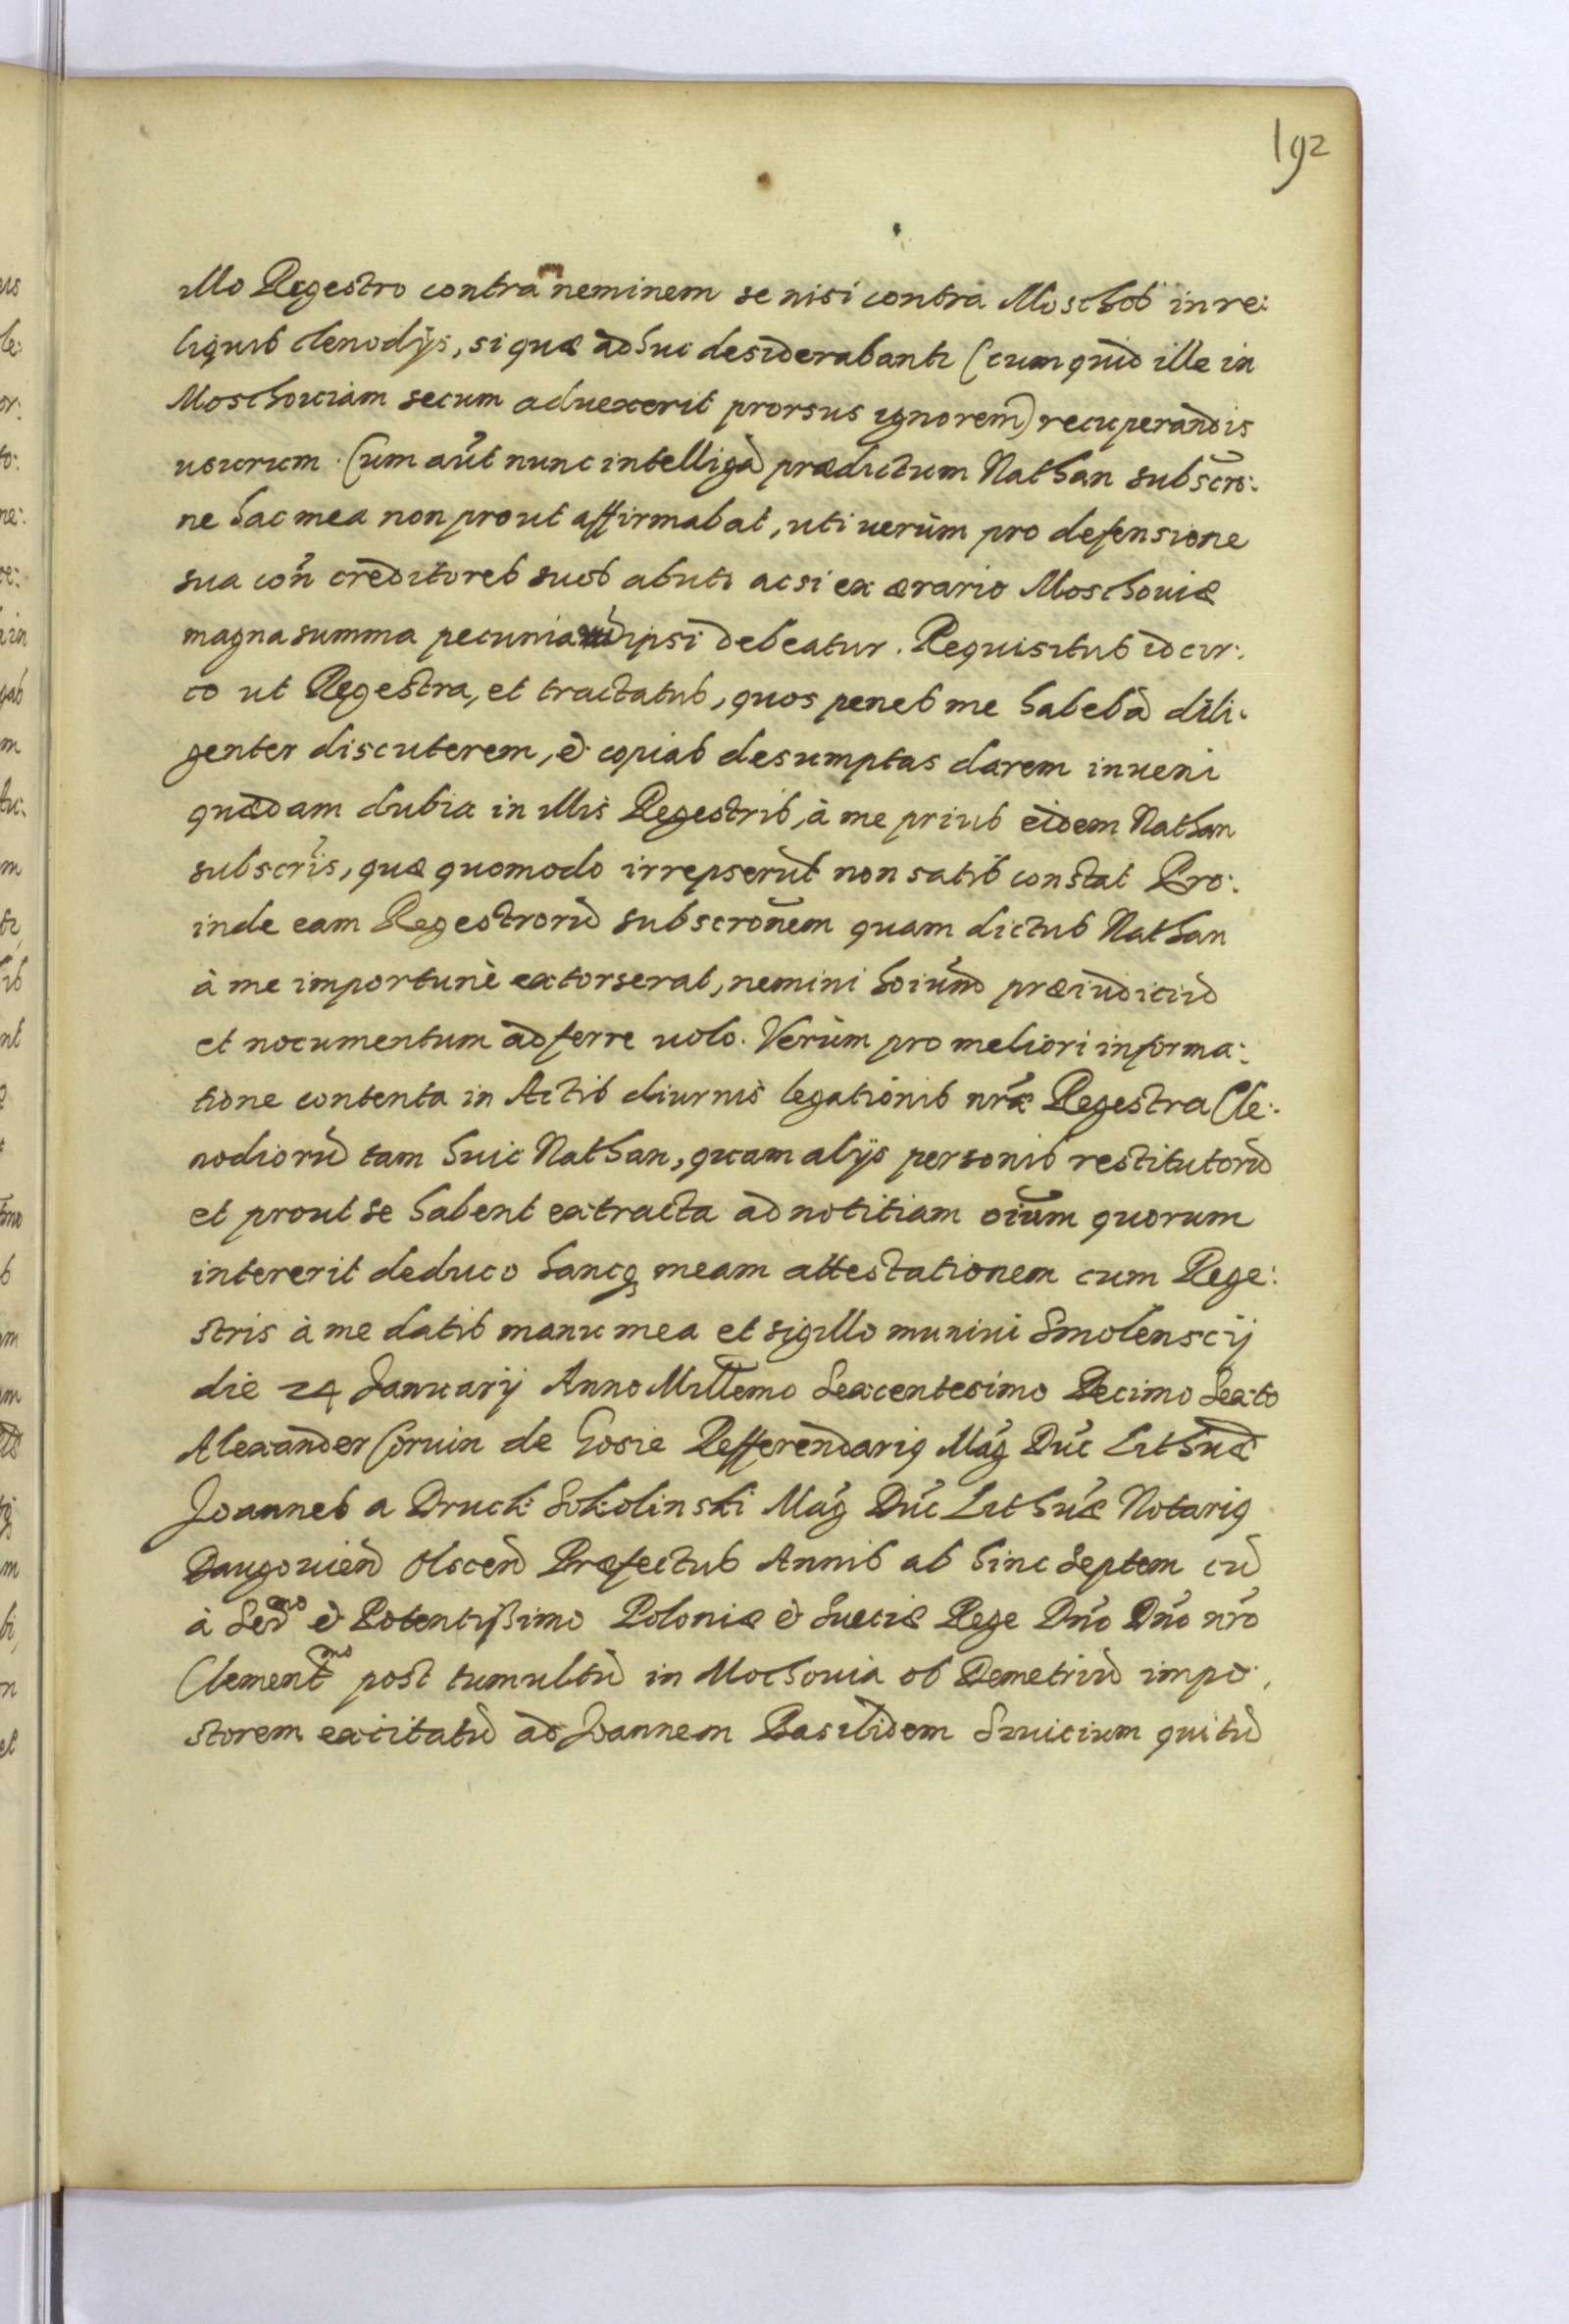 192
illo Regestro contra neminem se nisi contra Moschos in re:
liquis clenodijs, si quæ adhuc desiderabantr (cum quid ille in
Moschouiam secum aduexerit prorsus ignorem) recuperandis
usurum. Cum aut̃ nunc intelligã prædictum Nathan subscrõ:
ne hac mea non prout affirmabat, uti uerùm pro defensione
sua coñ creditores suos abuti ac si ex ærario Moschouiæ
magna summa pecunia ipsi debeatur. Requisitus idcir:
co ut Regestra, et tractatus, quos penes me habebã dili:
genter discuterem, & copias desumptas darem inueni
quædam dubia in illis Regestris, à me prius eidem Nathan
subscrĩs, quæ quomodo irrepserũt non satis constat Pro:
inde eam Regestrorũ subscrõnem quam dictus Nathan
à me importunè extorserat, nemini hoiũm præiudiciũ
et nocumentum adferre uolo. Verùm pro meliori informa:
tione contenta in Actis diurnis legationis nr̃æ Regestra Cle:
nodiorũ tam huic Nathan, quam alijs personis restitutorũ
et prout se habent extracta ad notitiam oĩum quorum
intererit deduco hancq meam attestationem cum Rege:
stris à me datis manu mea et sigillo muniui Smolenscij
die 24 Januarij Anno Millemo Sexcentesimo Decimo Sexto
Alexander Coruin de Gosie Refferendariq Mag̃ Duc̃ Lithuã
Joannes a Druck Sokolinski Mag̃ Duc̃ Lithuæ Notariq
Daugouień Olsceń Præfectus Annis ab hinc Septem cũ
à Serᵐᵒ & Potentissimo Poloniæ & Sueciæ Rege Dño Dño nr̃o
Clementᵐᵒ post tumultũ in Mochouia ob Demetriũ impo:
storem excitatũ ad Joannem Basilidem Suiscium qui tũ